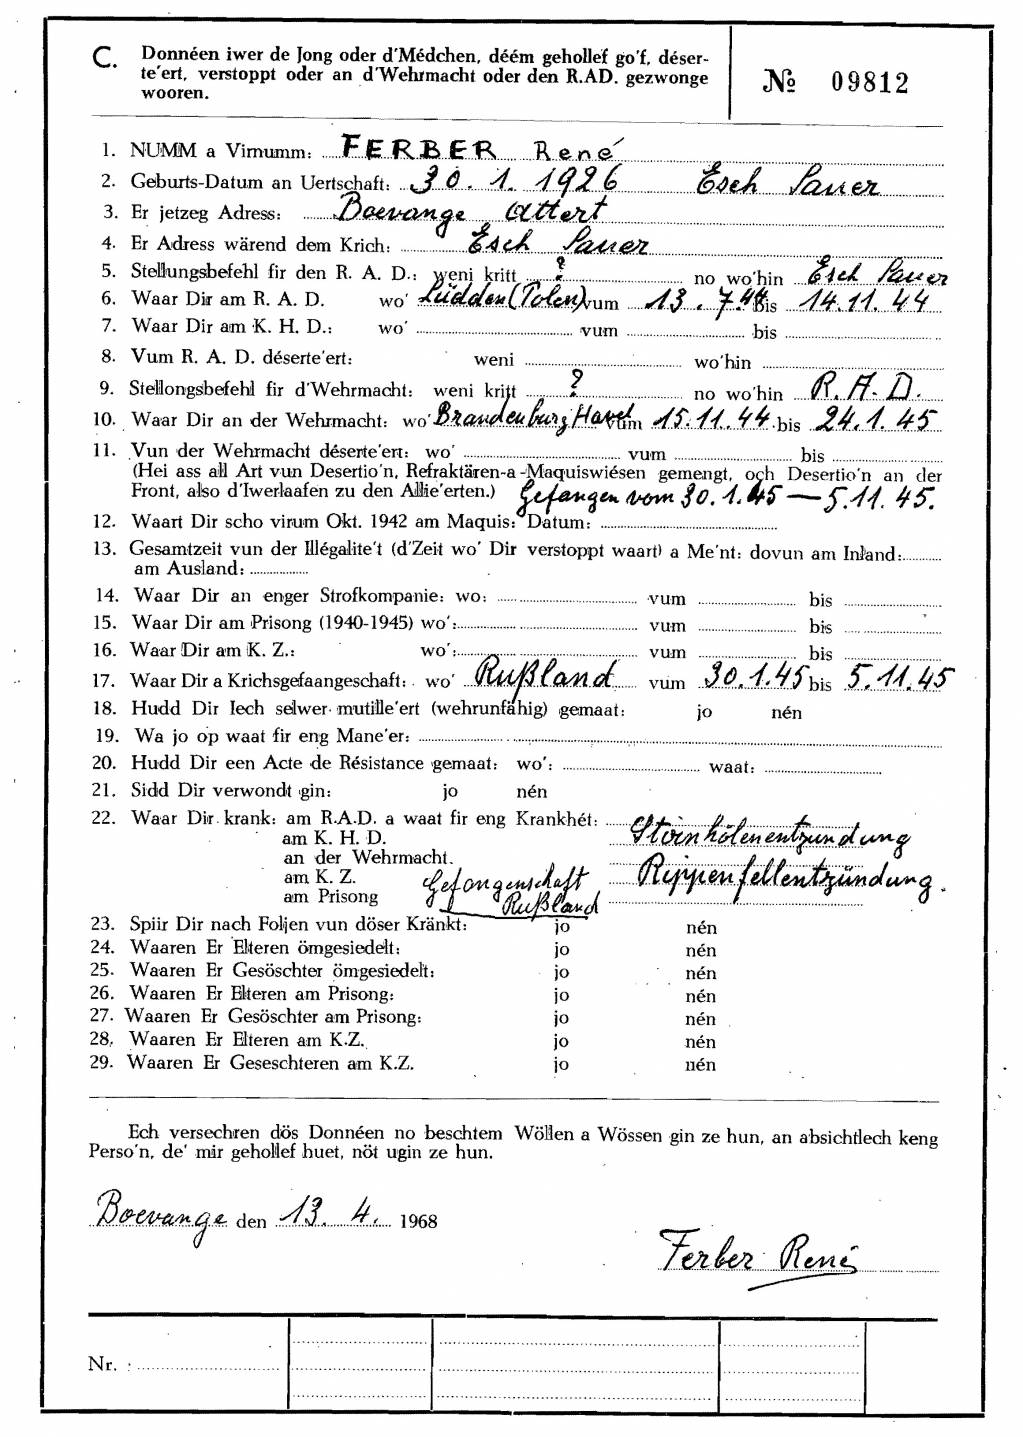 C. Donnéen iwer de Jong oder d'Médchen, déém gehollef go'f, déser-
te'ert, verstoppt oder an d'Wehrmacht oder den R.AD. gezwonge
wooren.
№ 09812
1. NUMM a Virnumm: FERBER René
2. Geburts-Datum an Uertschaft: 30. 1. 1926 Esch Sauer
3. Er jetzeg Adress: Boevange Attert
4. Er Adress wärend dem Krich: Esch Sauer
5. Stellungsbefehl fir den R. A. D.: weni kritt ? no wo'hin Esch Sauer
6. Waar Dir am R. A. D. wo' Lüdden (Polen) vum 13. 7. 44 bis 14. 11. 44
7. Waar Dir am K. H. D.: wo' vum bis
8. Vum R. A. D. déserte'ert: weni wo'hin
9. Stellongsbefehl fir d'Wehrmacht: weni kritt ? no wo'hin R. A. D.
10. Waar Dir an der Wehrmacht: wo' Brandenburg Havel vum 15. 11. 44 bis 24. 1. 45
11. Vun der Wehrmacht déserte'ert: wo' vum bis
(Hei ass all Art vun Desertio'n, Refraktären-a-Maquiswiésen gemengt, och Desertio'n an der
Front, also d'Iwerlaafen zu den Allie'erten.) Gefangen vom 30. 1. 45 — 5. 11. 45.
12. Waart Dir scho virum Okt. 1942 am Maquis: Datum:
13. Gesamtzeit vun der Illégalite't (d'Zeit wo' Dir verstoppt waart) a Me'nt: dovun am Inland:
am Ausland:
14. Waar Dir an enger Strofkompanie: wo: vum bis
15. Waar Dir am Prisong (1940-1945) wo': vum bis
16. Waar Dir am K. Z.: wo': vum bis
17. Waar Dir a Krichsgefaangeschaft: wo' Rußland vum 30. 1. 45 bis 5. 11. 45
18. Hudd Dir Iech selwer mutille'ert (wehrunfähig) gemaat: jo nén
19. Wa jo op waat fir eng Mane'er:
20. Hudd Dir een Acte de Résistance gemaat: wo': waat:
21. Sidd Dir verwondt gin: jo nén
22. Waar Dir krank: am R.A.D. a waat fir eng Krankhét:
am K. H. D. Stirnhölenentzundung
an der Wehrmacht.
am K. Z. Gefangenschaft Rippenfellentzündung.
am Prisong Rußland
23. Spiir Dir nach Foljen vun döser Kränkt: jo nén
24. Waaren Er Elteren ömgesiedelt: jo nén
25. Waaren Er Gesöschter ömgesiedelt: jo nén
26. Waaren Er Elteren am Prisong: jo nén
27. Waaren Er Gesöschter am Prisong: jo nén
28. Waaren Er Elteren am K.Z. jo nén
29. Waaren Er Geseschteren am K.Z. jo nén
Ech versechren dös Donnéen no beschtem Wöllen a Wössen gin ze hun, an absichtlech keng
Perso'n, de' mir gehollef huet, nöt ugin ze hun.
Boevange den 13. 4. 1968
Ferber René
Nr. :